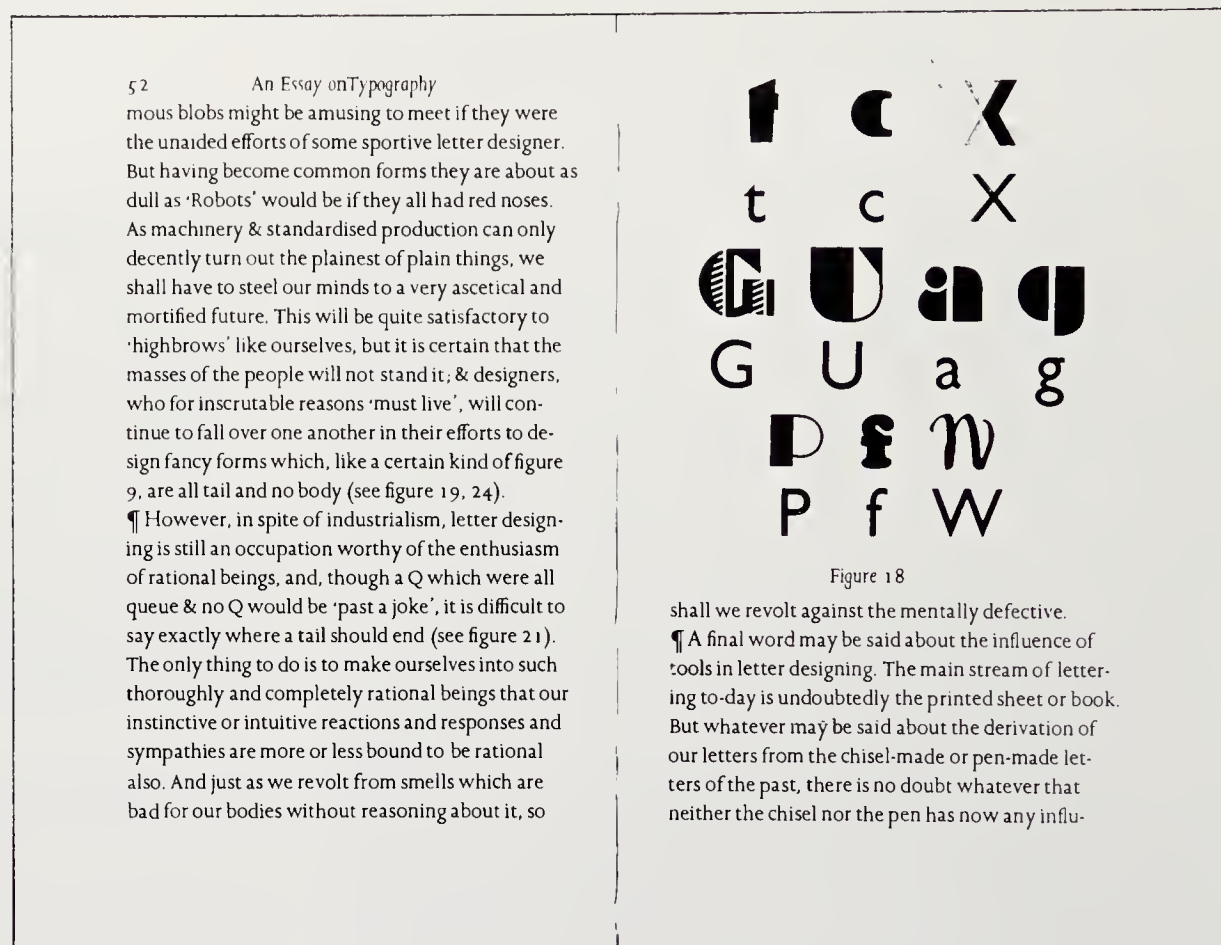 52 An Essay on Typography
mous blobs might be amusing to meet if they were
the unaided efforts of some sportive letter designer.
But having become common forms they are about as
dull as ‘Robots’ would be if they all had red noses.
As machinery & standardised production can only
decently turn out the plainest of plain things, we
shall have to steel our minds to a very ascetical and
mortified future. This will be quite satisfactory to
‘highbrows’ like ourselves, but it is certain that the
masses of the people will not stand it; & designers,
who for inscrutable reasons ‘must live’, will con-
tinue to fall over one another in their efforts to de-
sign fancy forms which, like a certain kind of figure
9, are all tail and no body (see figure 19, 24).
¶ However, in spite of industrialism, letter design-
ing is still an occupation worthy of the enthusiasm
of rational beings, and, though a Q which were all
queue & no Q would be ‘past a joke’, it is difficult to
say exactly where a tail should end (see figure 21).
The only thing to do is to make ourselves into such
thoroughly and completely rational beings that our
instinctive or intuitive reactions and responses and
sympathies are more or less bound to be rational
also. And just as we revolt from smells which are
bad for our bodies without reasoning about it, so
t c X
t c X
G U a g
G U a g
P f W
P f W
Figure 18
shall we revolt against the mentally defective.
¶ A final word may be said about the influence of
tools in letter designing. The main stream of letter-
ing to-day is undoubtedly the printed sheet or book.
But whatever may be said about the derivation of
our letters from the chisel-made or pen-made let-
ters of the past, there is no doubt whatever that
neither the chisel nor the pen has now any influ-